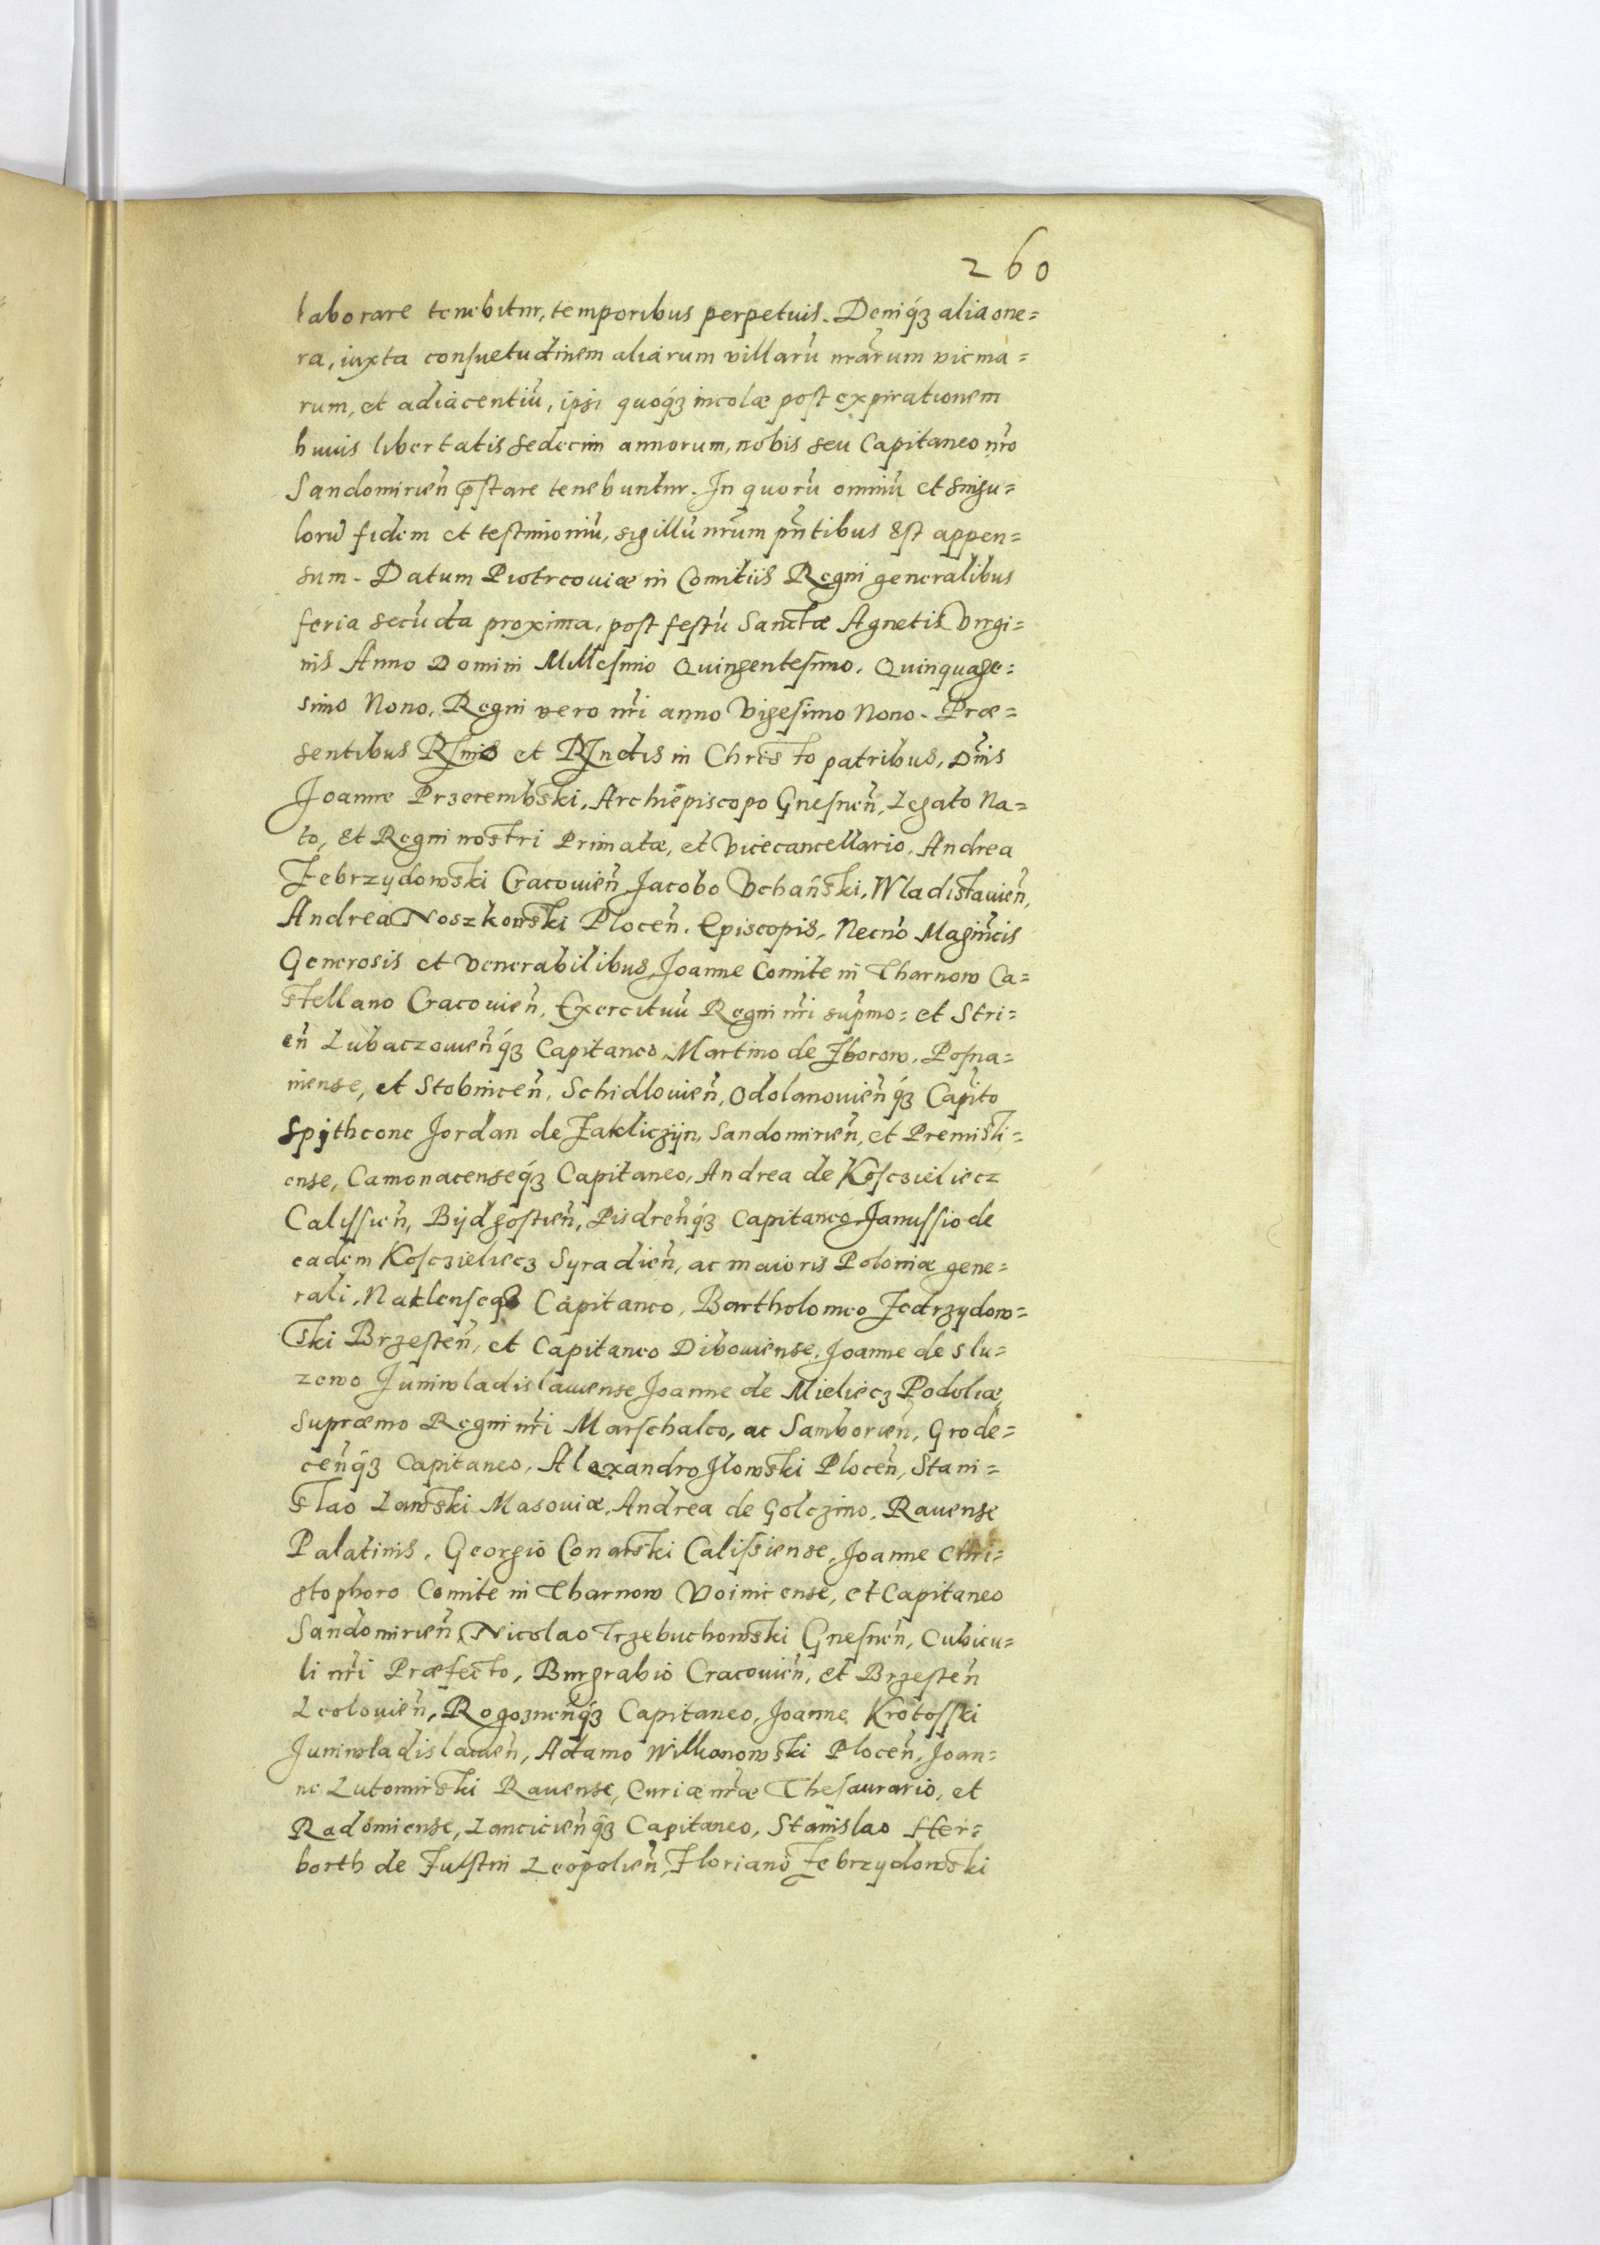 260
laborare tenebitur, temporibus perpetuis. Deniq́ꝫ alia one=
ra, iuxta consuetudinem aliarum villarū nr̄arum vicina=
rum, et adiacentiū, ipsi quoq́ꝫ incolæ post expirationem
huius libertatis sedecim annorum, nobis seu Capitaneo nr̄o
Sandomirien̄ p̄stare tenebuntur. In quorū omniū et singu=
lorū fidem et testimoniū, sigillū nr̄um pn̄tibus est appen=
sum. Datum Piotrcouiæ in Comitiis Regni generalibus
feria secūda proxima, post festū Sanctæ Agnetis Virgi=
nis Anno Domini Millesimo Quingentesimo. Quinquage=
simo Nono. Regni vero nr̄i anno Vigesimo Nono. Præ=
sentibus Rſmis et Rſndis in Christo patribus, Dn̄is
Joanne Przerembski, Archiepiscopo Gnesnen̄, Legato Na=
to, et Regni nostri Primatæ, et Vicecancellario, Andrea
Zebrzydowski Cracouien̄ Jacobo Vchański, Wladislauien̄,
Andrea Noszkowski Plocen̄. Episcopis, Necnō Magin̄cis
Generosis et Venerabilibus, Joanne Comite in Tharnow Ca=
stellano Cracouien̄, Exercituū Regni nr̄i sup̄mo= et Stri=
en̄ Lubaczouien̄q́ꝫ Capitaneo, Martino de Zborow. Posna=
niense, et Stobnicen̄, Schidlouien̄, Odolanouien̄q́ꝫ Capīto
Spijtheone Jordan de Zakliczijn, Sandomirien̄, et Premisli=
ense, Camonacenseq́ꝫ Capitaneo, Andrea de Kosczieliecz
Calissien̄, Bijdgostien̄, Pisdren̄q́ꝫ Capitaneo Janussio de
eadem Kosczieliecꝫ Syradien̄, ac maioris Poloniæ gene=
rali, Naklenseqꝫ Capitaneo, Bartholomeo Zedrzydow=
ski Brzesten̄, et Capitaneo Dibouiense, Joanne de Slu=
zewo Juniwladislauiense Joanne de Mieliecꝫ Podoliæ,
Supræmo Regni nr̄i Marschalco, ac Samborien̄, Grode=
cen̄q́ꝫ Capitaneo, Alexandro Jlowski Plocen̄, Stani=
slao Lawski Masouiæ, Andrea de Golczino, Rauense
Palatinis. Georgio Conarski Calissiense, Joanne Chri=
stophoro Comite in Tharnow Voinicense, et Capitaneo
Sandomirien̄, Nicolao Trzebuchowski Gnesnen̄, Cubicu=
li nr̄i Præfecto, Burgrabio Cracouien̄, et Brzesten̄
Leolouien̄, Rogoznen̄q́ꝫ Capitaneo, Joanne Krotosski
Juniwladislauien̄, Adamo Wilkanowski Plocen̄, Joan=
ne Lutomirski Rauense, Curiæ nr̄æ Thesaurario, et
Radomiense, Lancicien̄q́ꝫ Capitaneo, Stanislao Her=
borth de Fulstin Leopolien̄, Floriano Zebrzydowski